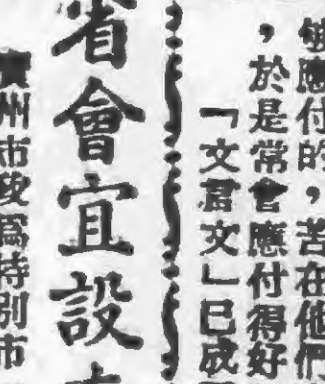 够應付的，苦在他們
，於是常會應付得好
「文言文」已成
省會宜設
州市改爲特別市